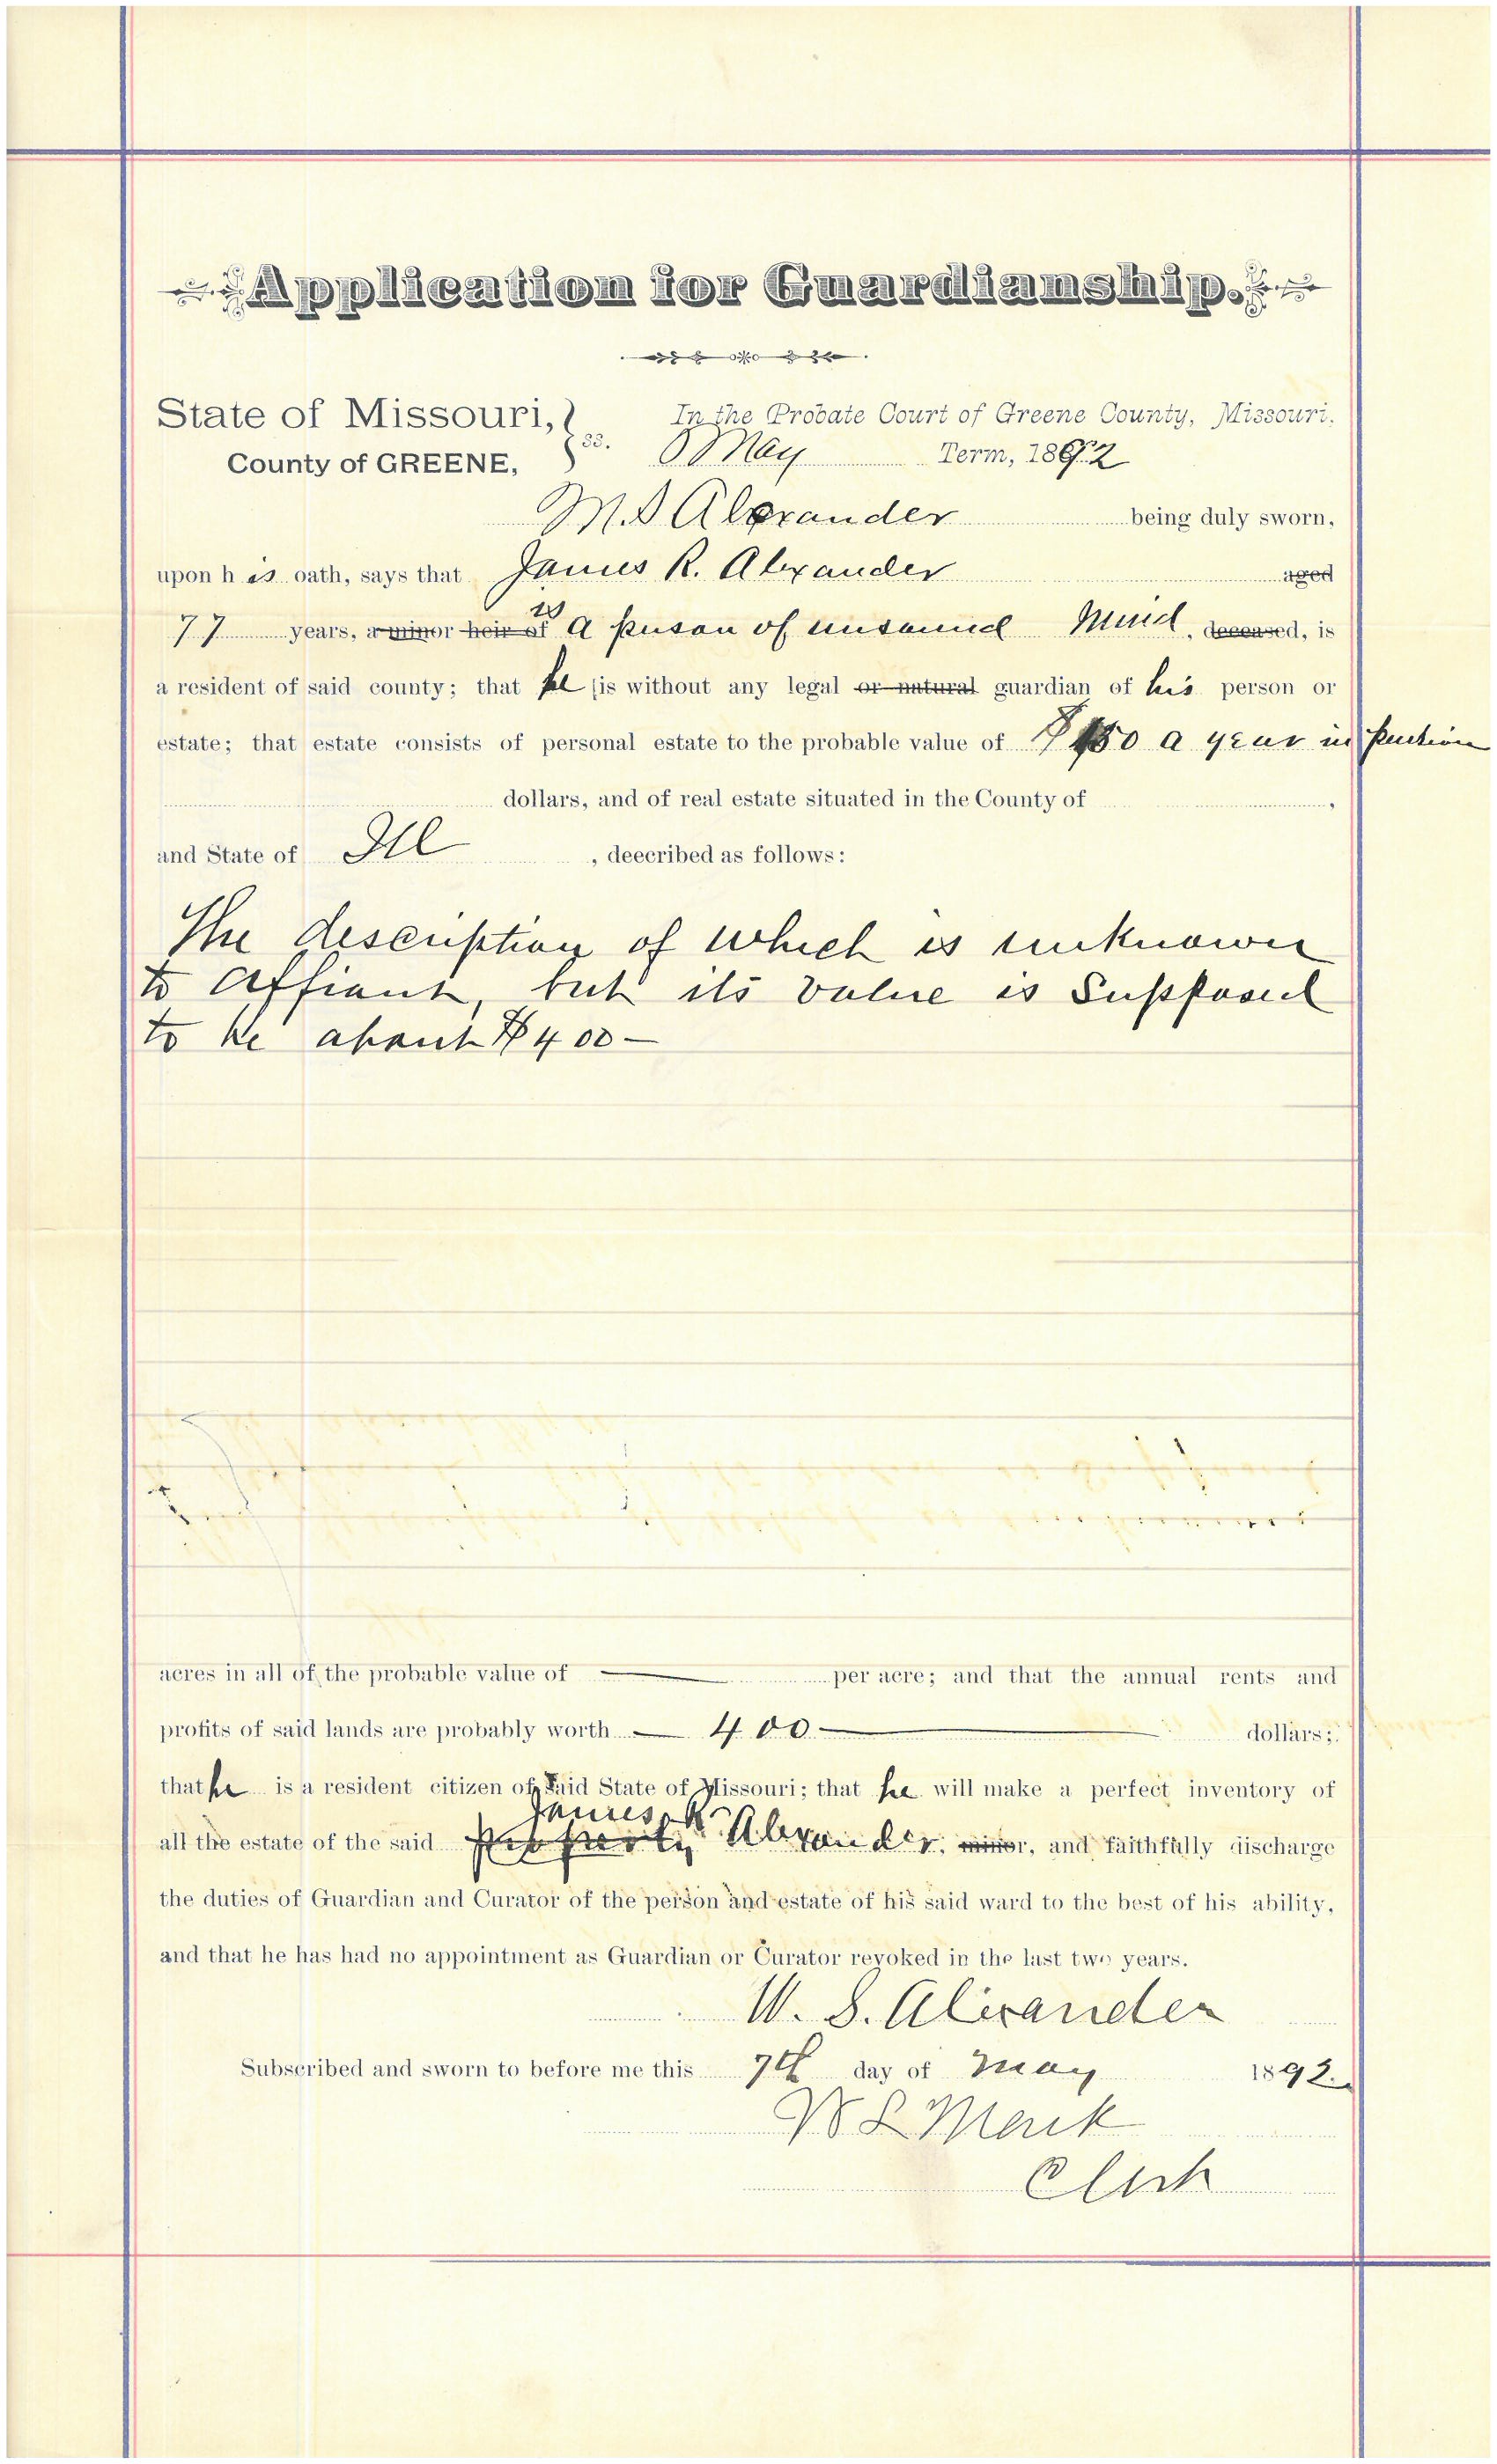 Application for Guardianship.
State of Missouri, ss. In the Probate Court of Greene County, Missouri.
County of GREENE, May Term, 1892
Alexander being duly sworn,
upon his oath, says that James R. Alexander aged
77 years, a minor heir of is a person of unsound Mind, deceased, is
a resident of said county; that he is without any legal or natural guardian of his person or
estate; that estate consists of personal estate to the probable value of a year in pension
dollars, and of real estate situated in the County of ,
and State of Ill , deecribed as follows:
The description of which is unknown
to affiant, but its value is Supposed
to be about $400—
acres in all of the probable value of — per acre; and that the annual rents and
profits of said lands are probably worth — 400 — dollars;
that he is a resident citizen of said State of Missouri; that he will make a perfect inventory of
James R
all the estate of the said property Alexander, minor, and faithfully discharge
the duties of Guardian and Curator of the person and estate of his said ward to the best of his ability,
and that he has had no appointment as Guardian or Curator revoked in the last two years.
W. S. Alexander
Subscribed and sworn to before me this 7th day of May 1892.
Clerk